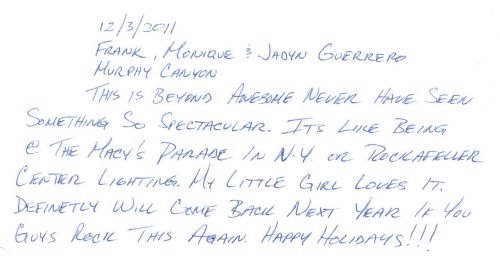 12/3/2011
Frank, Monique & Jadyn Guerrero
Murphy Canyon
This is Beyond Awesome Never Have Seen
Something So Spectacular. Its Like Being
@ The Macy's Parade In N.Y. or Rockafeller
Center Lighting. My Little Girl Loves It.
Definetly Will Come Back Next Year If You
Guys Rock This Again. Happy Holidays!!!